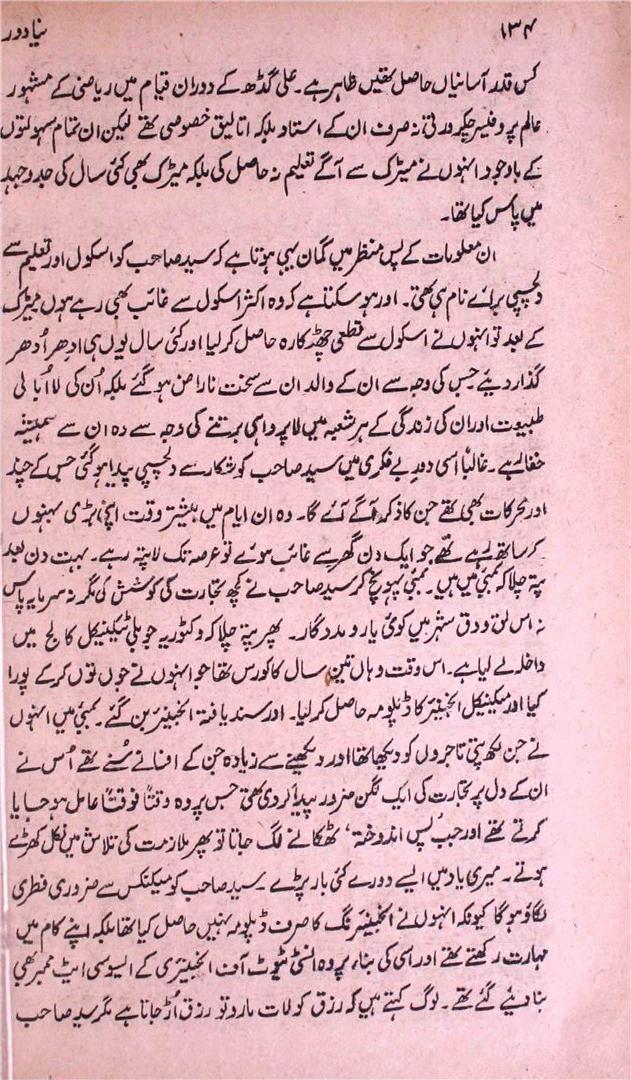 ۱۳۴
نیا دور
کس قدر آسانیاں حاصل تھیں ظاہر ہے۔ علی گڈھ کے دوران قیام میں ریاضی کے مشہور
عالم پروفیسر چکرورتی نہ صرف ان کے استاد بلکہ اتالیق خصوصی تھے لیکن ان تمام سہولتوں
کے باوجود انہوں نے میٹرک سے آگے تعلیم نہ حاصل کی بلکہ میٹرک بھی کئی سال کی جدوجہد
میں پاس کیا تھا۔
ان معلومات کے پس منظر میں گمان یہی ہوتا ہے کہ سید صاحب کو اسکول اور تعلیم سے
دلچسپی برائے نام ہی تھی۔ اور ہو سکتا ہے کہ وہ اکثر اسکول سے غائب بھی رہے ہوں میٹرک
کے بعد تو انہوں نے اسکول سے قطعی چھٹکارہ حاصل کر لیا اور کئی سال یوں ہی ادھر اُدھر
گذار دیئے جس کی وجہ سے ان کے والد ان سے سخت ناراض ہو گئے بلکہ اُن کی لااُبالی
طبیعت اور ان کی زندگی کے ہر شعبہ میں لاپرواہی برتنے کی وجہ سے وہ ان سے ہمیشہ
خفا رہے۔ غالباً اسی دورِ بے فکری میں سید صاحب کو شکار سے دلچسپی پیدا ہو گئی جس کے چند
اور محرکات بھی تھے جن کا ذکر آگے آئے گا۔ وہ ان ایام میں بیشتر وقت اپنی بڑی بہنوں
کے ساتھ رہے تھے جو ایک دن گھر سے غائب ہوئے تو عرصہ تک لاپتہ رہے۔ بہت دن بعد
پتہ چلا کہ بمبئی میں ہیں۔ بمبئی پہونچ کر سید صاحب نے کچھ تجارت کی کوشش کی مگر نہ سرمایہ پاس
نہ اس لق و دق شہر میں کوئی یار و مددگار۔ پھر پتہ چلا کہ وکٹوریہ جوبلی ٹیکنیکل کالج میں
داخلہ لے لیا ہے۔ اس وقت وہاں تین سال کا کورس تھا جو انہوں نے جوں توں کر کے پورا
کیا اور میکینیکل انجینیر کا ڈپلومہ حاصل کر لیا۔ اور سند یافتہ انجینیر بن گئے۔ بمبئی میں انہوں
نے جن لکھ پتی تاجروں کو دیکھا تھا اور دیکھنے سے زیادہ جن کے افسانے سُنے تھے اُس نے
ان کے دل پر تجارت کی ایک لگن ضرور پیدا کر دی تھی جس پر وہ وقتاً فوقتاً عامل ہو جایا
کرتے تھے اور جب 'پس اندوختہ' ٹھکانے لگ جاتا تو پھر ملازمت کی تلاش میں نکل کھڑے
ہوتے۔ میری یاد میں ایسے دورے کئی بار پڑے۔ سید صاحب کو میکنکس سے ضروری فطری
لگاؤ ہوگا کیونکہ انہوں نے انجینیرنگ کا صرف ڈپلومہ نہیں حاصل کیا تھا بلکہ اپنے کام میں
مہارت رکھتے تھے اور اسی کی بناء پر وہ انسٹی ٹیوٹ آف انجینیری کے ایسوسی ایٹ ممبر بھی
بنا دیئے گئے تھے۔ لوگ کہتے ہیں کہ رزق کو لات مارو تو رزق اُڑ جاتا ہے مگر سید صاحب